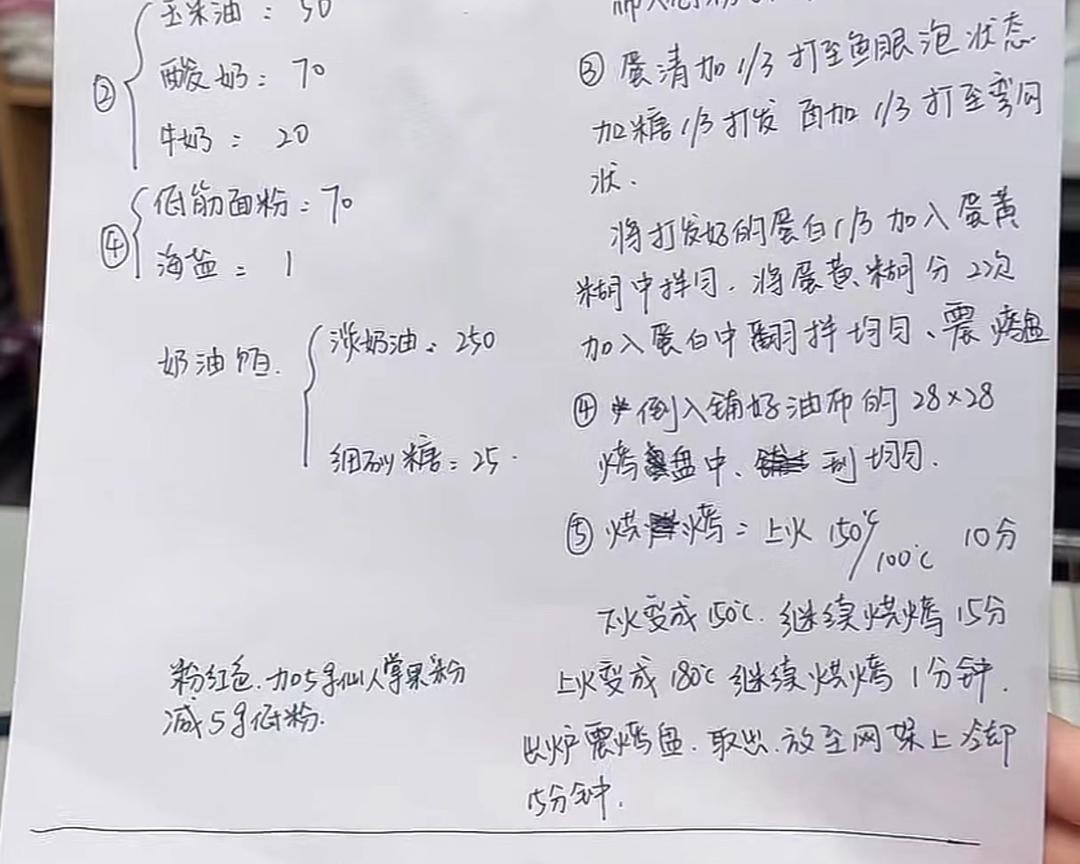 ② 玉米油：50
酸奶：70
牛奶：20
④ 低筋面粉：70
海盐：1
奶油馅. 淡奶油：250
细砂糖：25.
粉红色.加5g仙人掌果粉
减5g低粉.
③ 蛋清加1/3打至鱼眼泡状态
加糖1/3打发 再加1/3打至弯勾
状.
将打发好的蛋白1/3加入蛋黄
糊中拌匀.将蛋黄糊分2次
加入蛋白中翻拌均匀、震烤盘
④ 倒入铺好油布的28×28
烤盘中、刮均匀.
⑤ 烘烤：上火150℃/100℃ 10分
下火变成150℃.继续烘烤15分
上火变成180℃继续烘烤1分钟.
出炉震烤盘.取出.放至网架上冷却
15分钟.